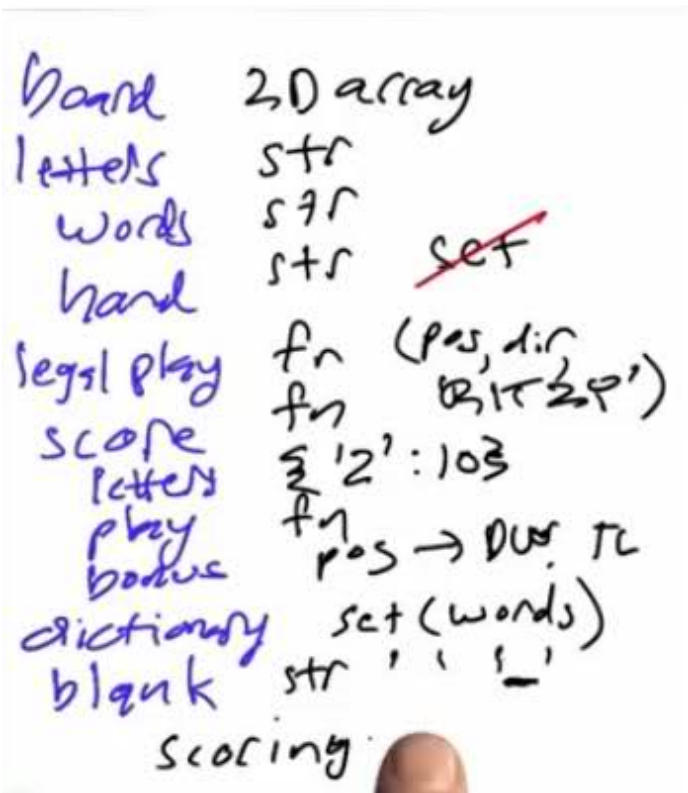 board 2D array
letters str
words str
hand str set
legal play fn (pos, dir,
'BITZ?')
score fn
letters {'Z':10}
play fn
bonus pos → DW, TL
dictionary set(words)
blank str ' ' '_'
scoring